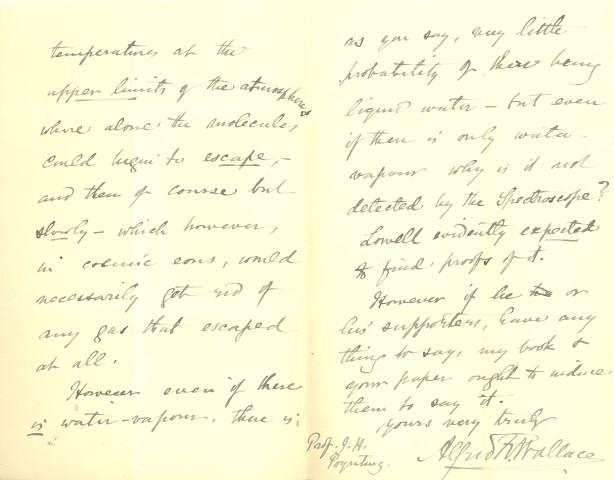 temperatures at the
upper limits of the atmosphere
where alone the molecules
could begin to escape, –
and then of course but
slowly – which however,
in cosmic eons, would
necessarily get rid of
any gas that escaped
at all.
However even if there
is water-vapour, there is,
as you say, very little
probability of there being
liquid water – but even
if there is only water-
vapour why is it not
detected by the Spectroscope?
Lowell evidently expected
to find proofs of it.
However if he or
his supporters, have any
thing to say, my book &
your paper ought to induce
them to say it.
Yours very truly
Alfred R. Wallace
Prof. J. H.
Poynting.